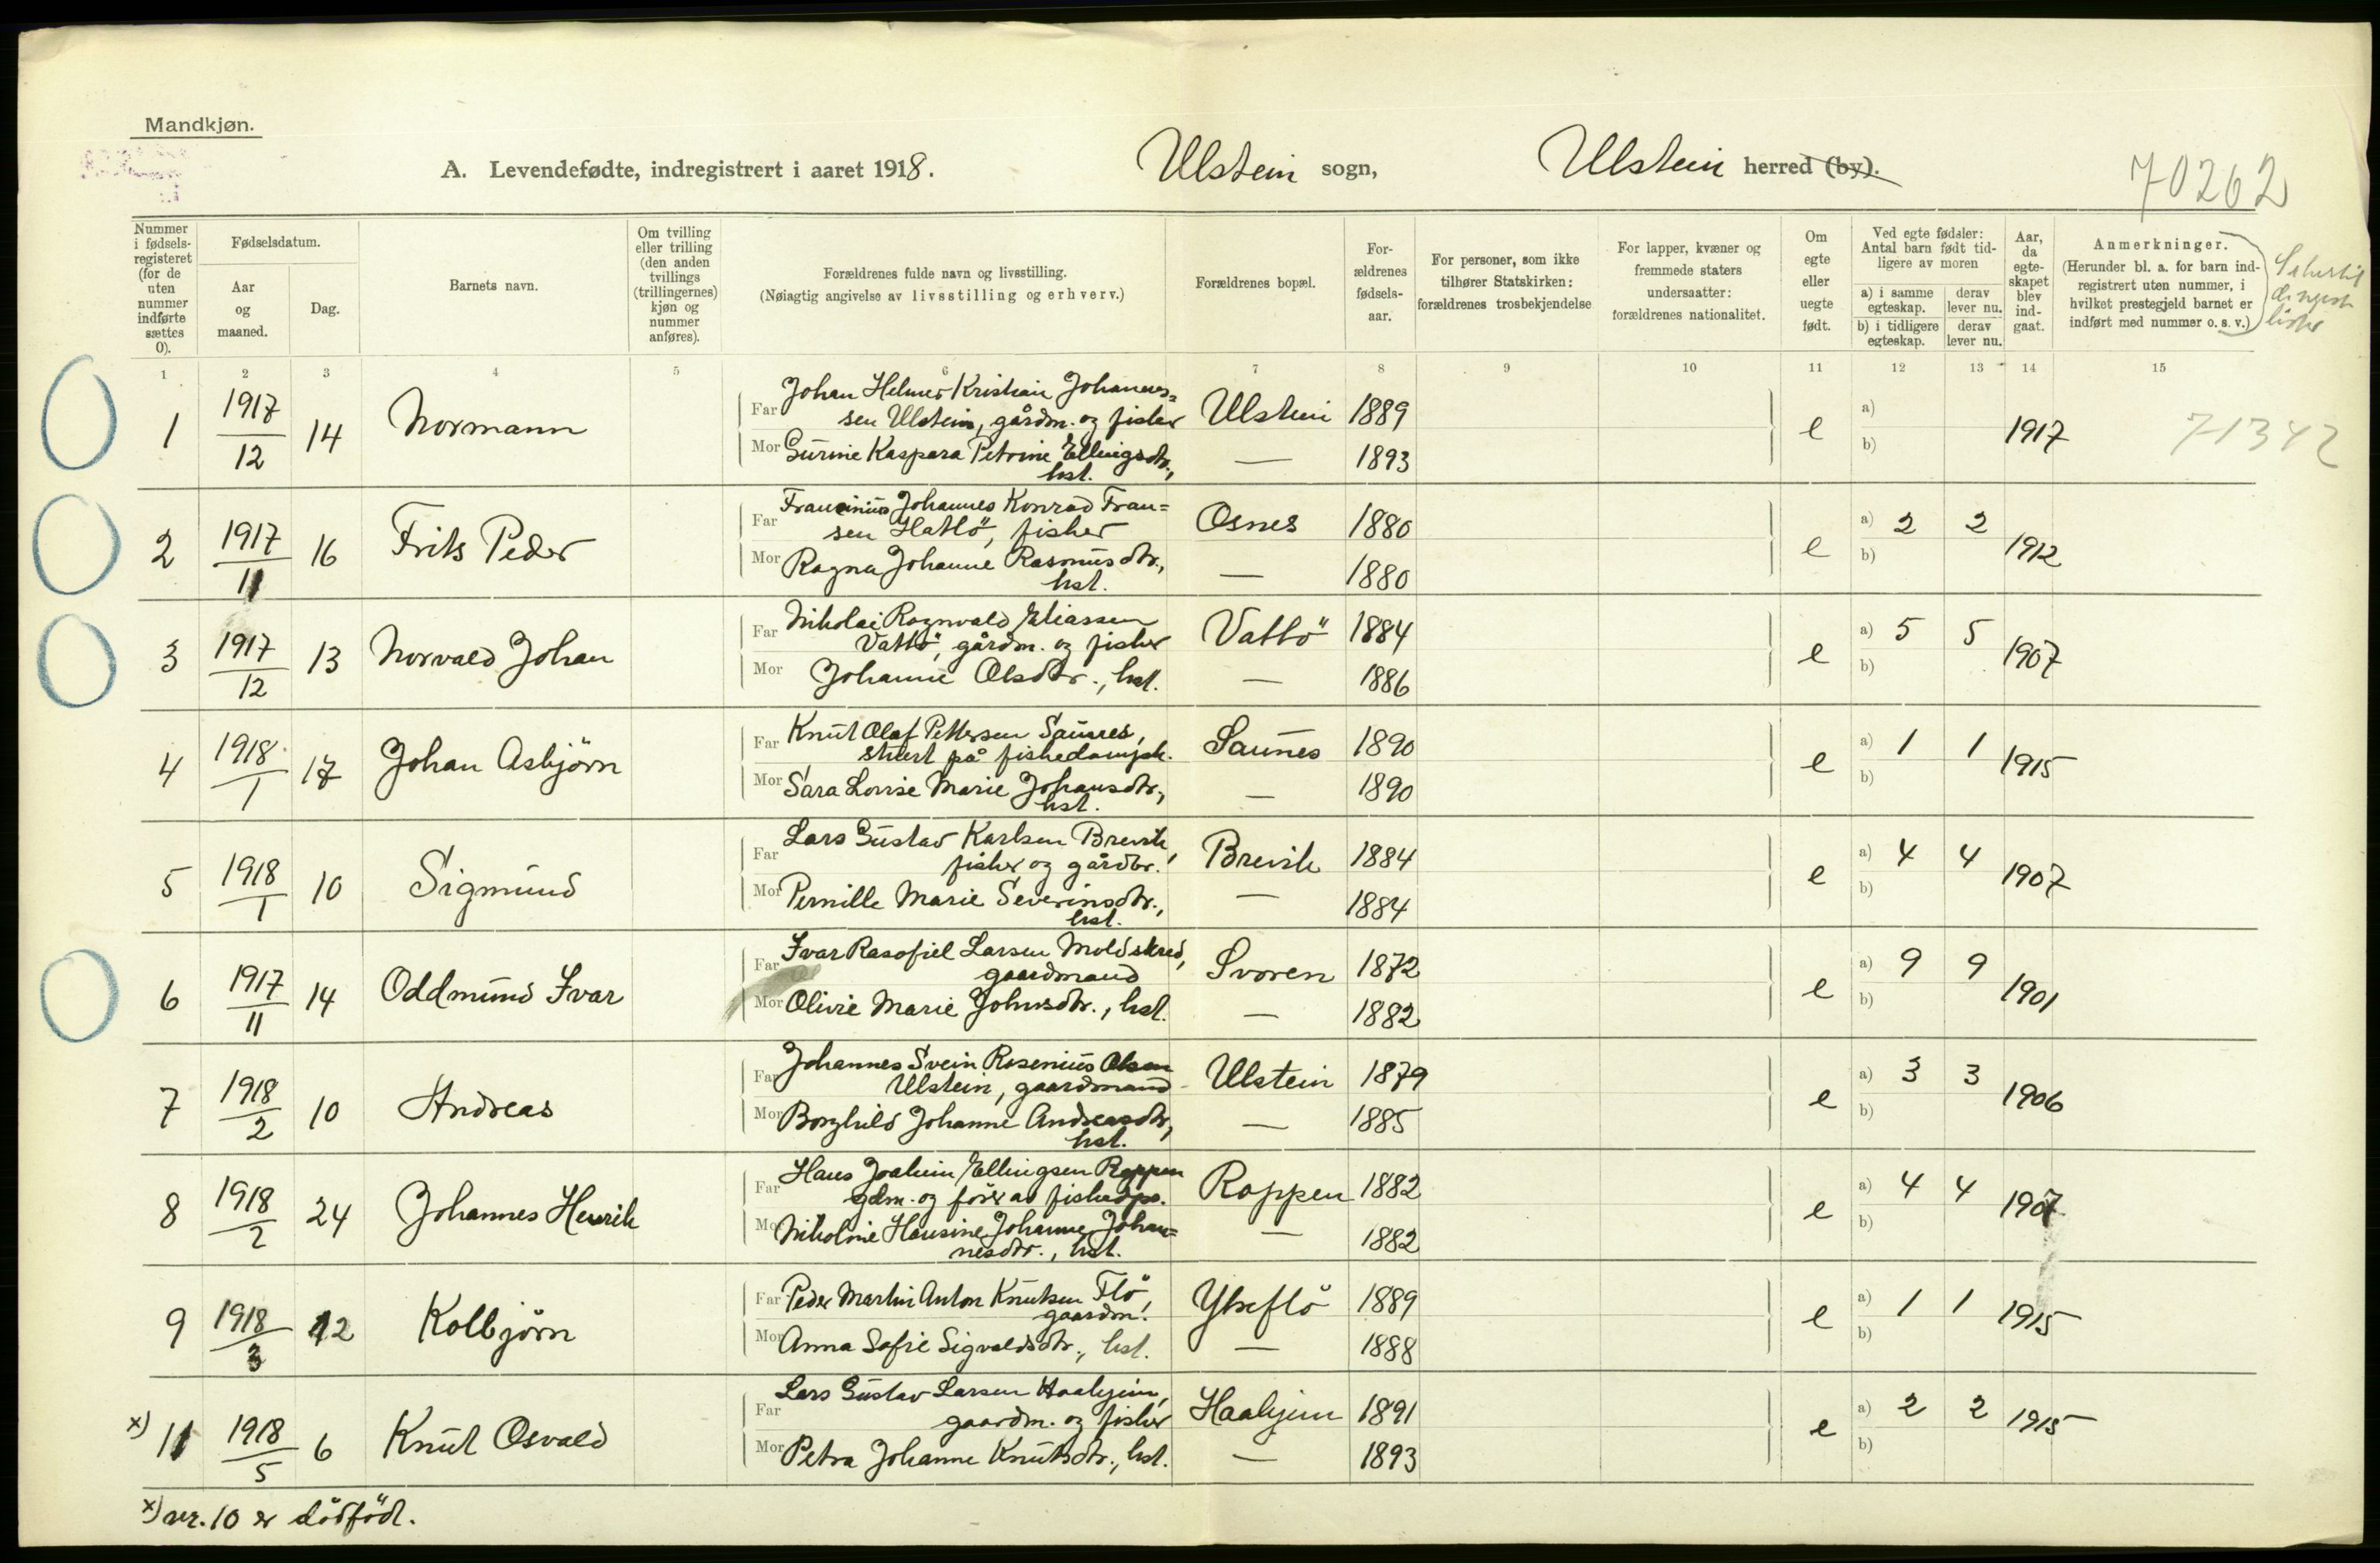 Mandkjøn.
A. Levendefødte, indregistrert i aaret 1918. Ulstein sogn, Ulstein herred (by).
70262
Nummer i fødsels-registeret (for de uten nummer indførte sættes 0).
Fødselsdatum.
Aar og maaned.
Dag.
Barnets navn.
Om tvilling eller trilling (den anden tvillings (trillingernes) kjøn og nummer anføres).
Forældrenes fulde navn og livsstilling.
(Nøiagtig angivelse av livsstilling og erhverv.)
Forældrenes bopæl.
For-ældrenes fødsels-aar.
For personer, som ikke tilhører Statskirken: forældrenes trosbekjendelse
For lapper, kvæner og fremmede staters undersaatter: forældrenes nationalitet.
Om egte eller uegte født.
Ved egte fødsler: Antal barn født tid-ligere av moren
a) i samme egteskap. derav lever nu.
b) i tidligere egteskap. derav lever nu.
Aar, da egte-skapet blev ind-gaat.
Anmerkninger.
(Herunder bl. a. for barn ind-registrert uten nummer, i hvilket prestegjeld barnet er indført med nummer o. s. v.)
1 2 3 4 5 6 7 8 9 10 11 12 13 14 15
1 1917/12 14 Normann
Far Johan Helmer Kristian Johannes=
sen Ulstein, gårdm. og fisker Ulstein 1889
Mor Gurine Kaspara Petrine Ellingsdtr., — 1893
hst.
e a) b) 1917 71342
2 1917/11 16 Frits Peder
Far Francinius Johannes Konrad Fran=
sen Hatlö, fisker Osnes 1880
Mor Ragna Johanne Rasmusdtr., — 1880
hst.
e a) 2 2 b) 1912
3 1917/12 13 Norvald Johan
Far Nikolai Ragnvald Eliassen
Vattö, gårdm. og fisker Vattö 1884
Mor Johanne Olsdtr., hst. — 1886
e a) 5 5 b) 1907
4 1918/1 17 Johan Asbjörn
Far Knut Olaf Pettersen Saunes,
stuert på fiskedampsk. Saunes 1890
Mor Sara Lovise Marie Johansdtr., — 1890
hst.
e a) 1 1 b) 1915
5 1918/1 10 Sigmund
Far Lars Gustav Karlsen Brevik,
fisker og gårdbr. Brevik 1884
Mor Pernille Marie Severinsdtr., — 1884
hst.
e a) 4 4 b) 1907
6 1917/11 14 Oddmund Ivar
Far Ivar Rasofiel Larsen Moldskred,
gaardmand Svoren 1872
Mor Olivie Marie Johnsdtr., hst. — 1882
e a) 9 9 b) 1901
7 1918/2 10 Andreas
Far Johannes Svein Rosenius Olsen
Ulstein, gaardmand Ulstein 1879
Mor Borghild Johanne Andreasdtr., — 1885
hst.
e a) 3 3 b) 1906
8 1918/2 24 Johannes Henrik
Far Hans Joakim Ellingsen Roppen
gdm. og förer av fiskedps. Roppen 1882
Mor Nikoline Hansine Johanne Johan=
nesdtr., hst. — 1882
e a) 4 4 b) 1907
9 1918/3 12 Kolbjörn
Far Peder Martin Anton Knutsen Flö,
gaardm. Ytreflö 1889
Mor Anna Sofie Sigvaldsdtr., hst. — 1888
e a) 1 1 b) 1915
x) 11 1918/5 6 Knut Osvald
Far Lars Gustav Larsen Haahjem,
gaardm. og fisker Haahjem 1891
Mor Petra Johanne Knutsdtr., hst. — 1893
e a) 2 2 b) 1915
x) nr. 10 er dödfödt.